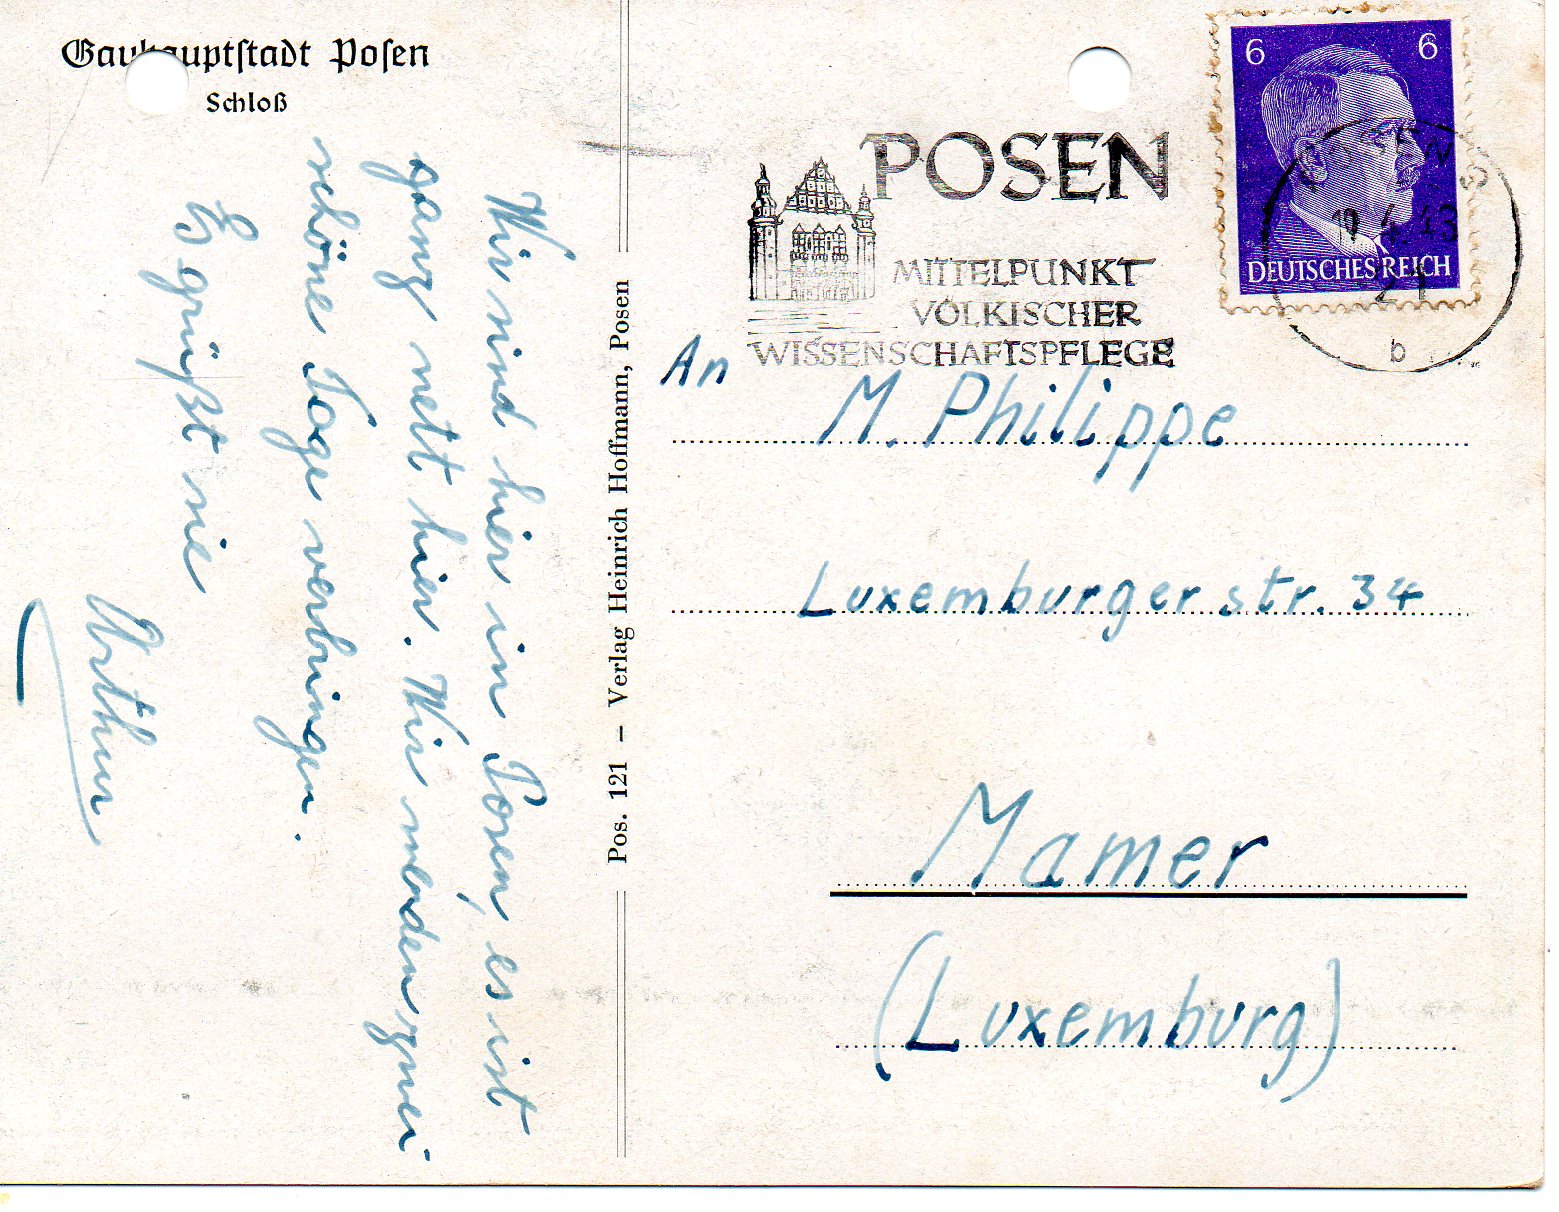 Gauhauptstadt Posen
Schloß
Wir sind hier in Posen, es ist
ganz nett hier. Wir werden zwei
schöne Tage verbringen.
Es grüßt sie
Arthur
Pos. 121 – Verlag Heinrich Hoffmann, Posen
POSEN
MITTELPUNKT
VOLKISCHER
WISSENSCHAFTSPFLEGE
6 6
DEUTSCHES REICH
POSEN
4.43
21
b
An
M. Philippe
Luxemburger str. 34
Mamer
(Luxemburg)